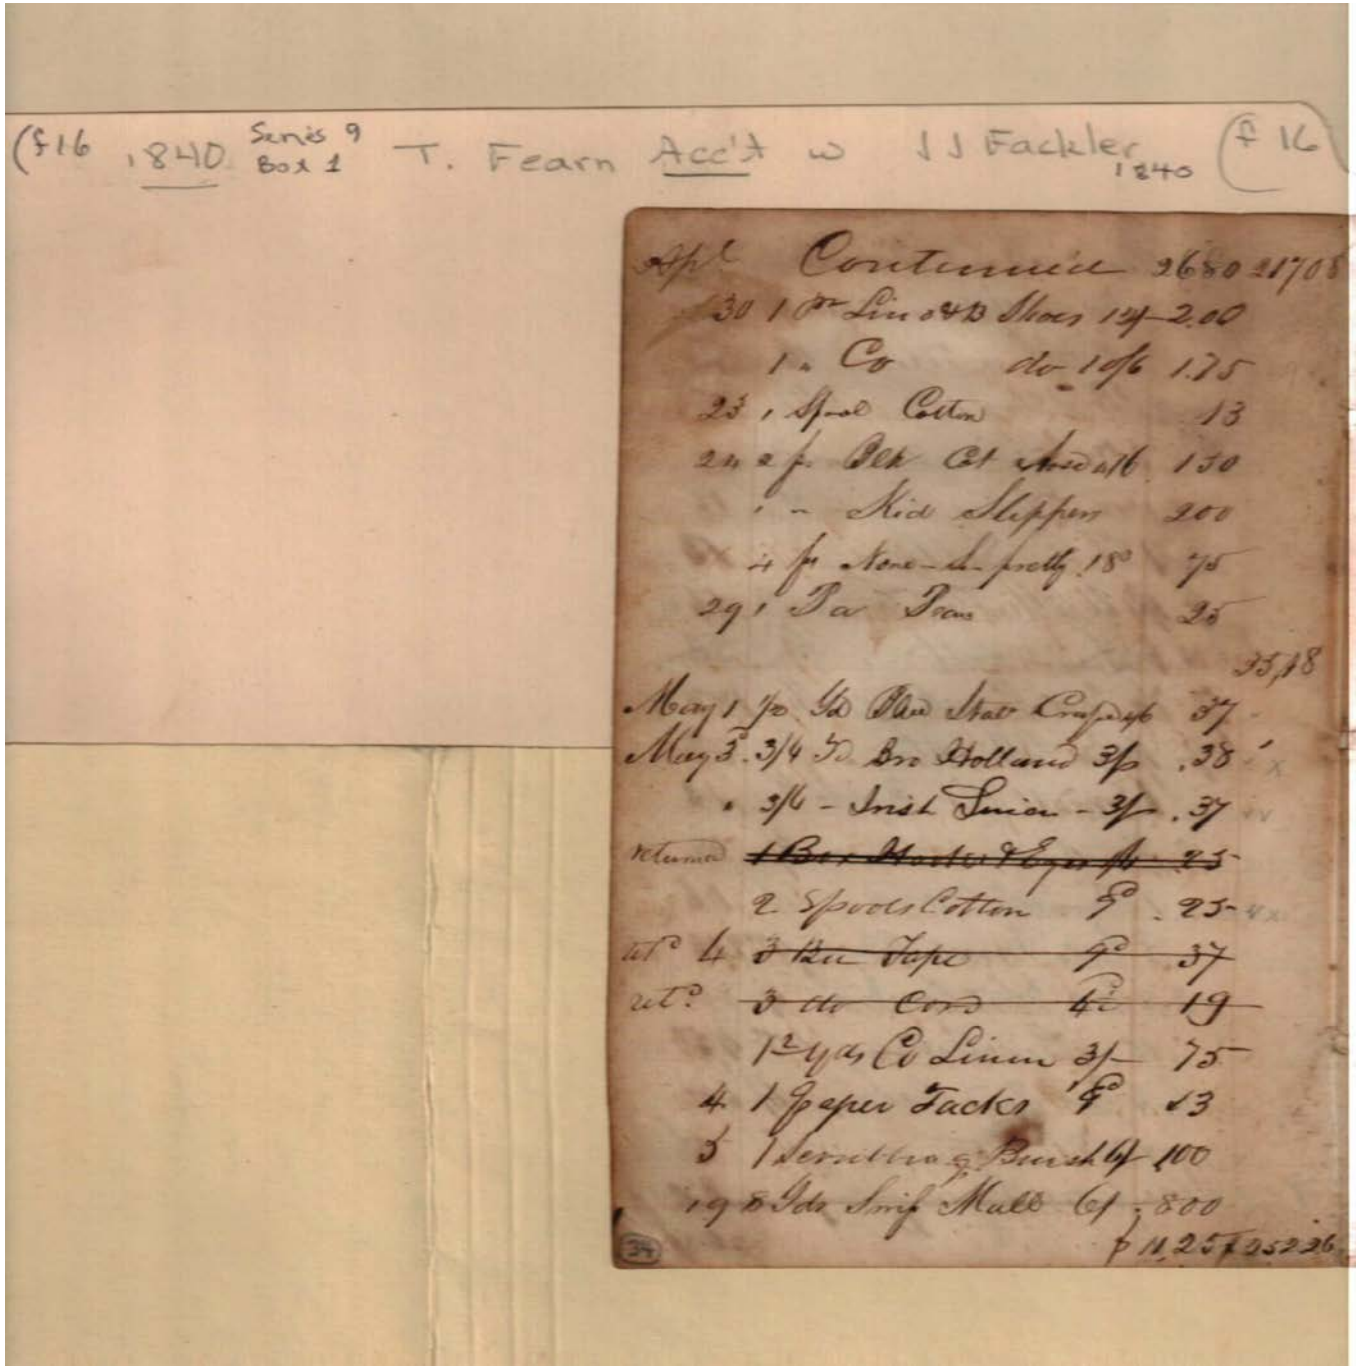 (f16 1840 Series 9 Box 1 T. Fearn Acc't w J J Fackler 1840 (f 16
Apl Continued 2680 21708
30 1 Pr Shoes 12/ 2.00
1 " Co do 10/6 1.75
23 1 Spool Cotton 13
2 pr Blk Cot 150
1 " Kid Slippers 200
4 ps None-So-pretty 18d 75
29 1 Pa 25
35,18
May 1 1/2 Yd Crape 37
May 3 3/4 Yd Bro Holland 3/ .38
" 3/4 - Irish Linen - 3/ .37
returned 1 Box .25
2 Spools Cotton 9d .25
retd 4 3 Tape 9d 37
retd 3 do Cord 19
1 2 yds Co Linen 3/ 75
4 1 Paper Tacks 9d 13
5 1 Brush 6/ 100
19 8 Yds Mull 6/ 800
11,25 252 26
34